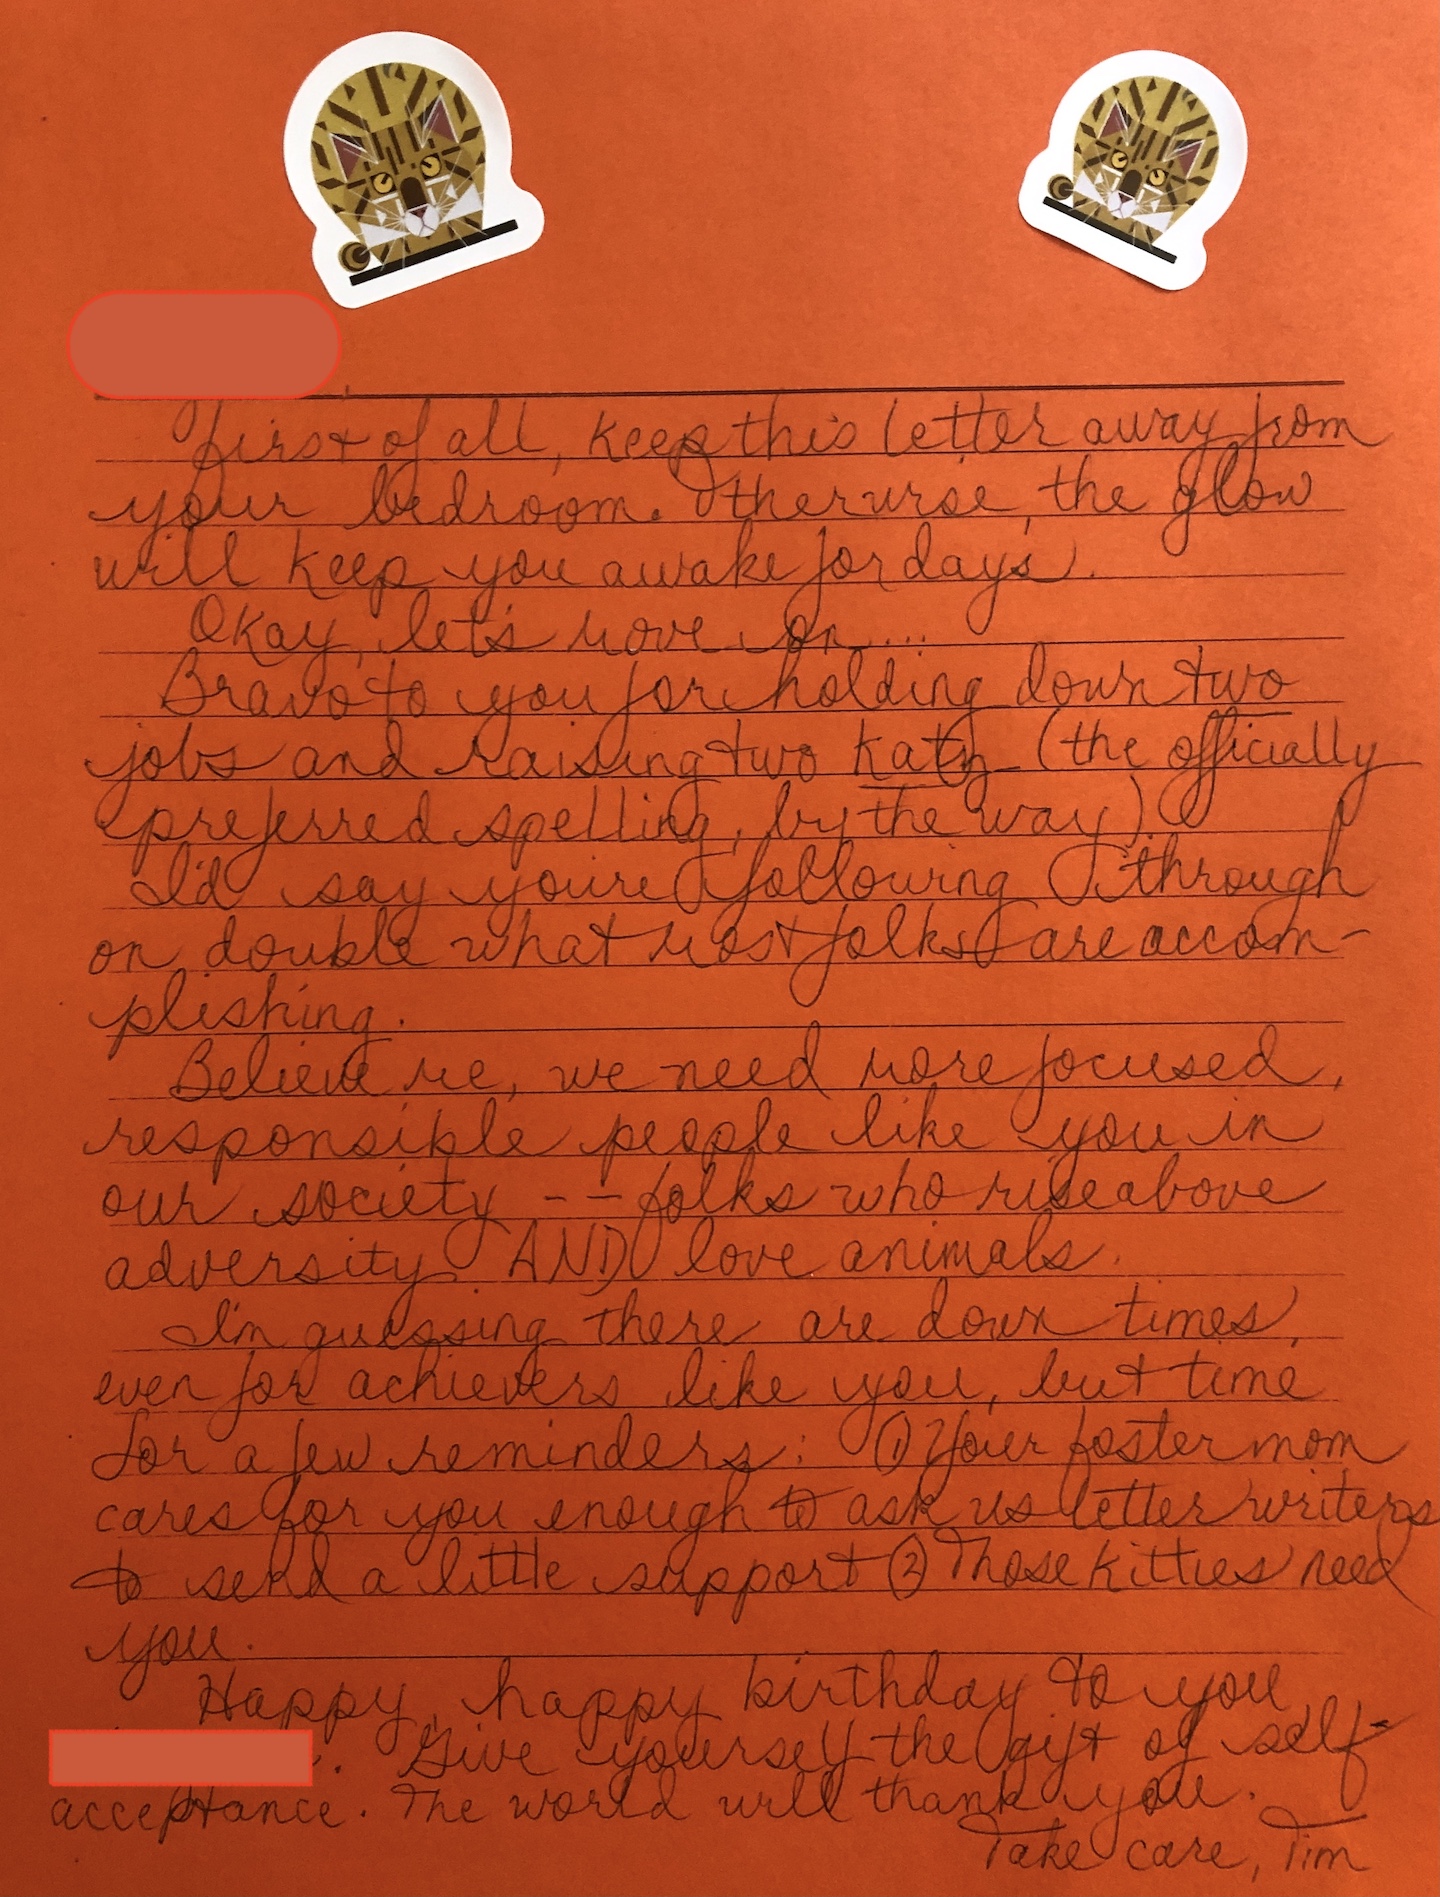 First of all, keep this letter away from
your bedroom. Otherwise, the glow
will keep you awake for days.
Okay, let's move on...
Bravo to you for holding down two
jobs and raising two katz (the officially
preferred spelling, by the way).
I'd say you're following through
on double what most folks are accom-
plishing.
Believe me, we need more focused,
responsible people like you in
our society -- folks who rise above
adversity AND love animals.
I'm guessing there are down times,
even for achievers like you, but time
for a few reminders: (1) Your foster mom
cares for you enough to ask us letter writers
to send a little support (2) Those kitties need
you.
Happy, happy birthday to you
. Give yourself the gift of self-
acceptance. The world will thank you.
Take care, Tim